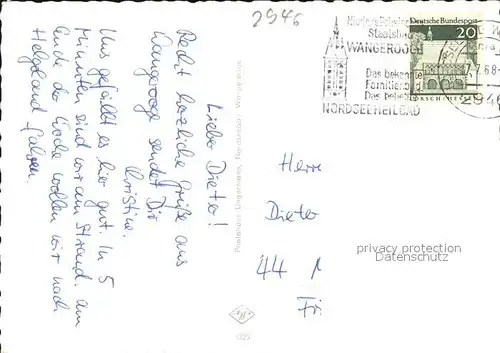 2946
Niedersächsisches
Staatsbad
WANGEROOGE
Das bekannte
Familienbad
Das beliebte
NORDSEEHEILBAD
Deutsche Bundespost
20
LORSCH/HESSEN
7.68-
2946
Liebe Dieter!
Recht herzliche Grüße aus
Wangerooge sendet Dir
Christine.
Uns gefällt es hier gut. In 5
Minuten sind wir am Strand. Am
Ende der Woche wollen wir nach
Helgoland fahren.
Wangerooge
Herre
Dieter
44 M
privacy protection
Datenschutz
Agfa